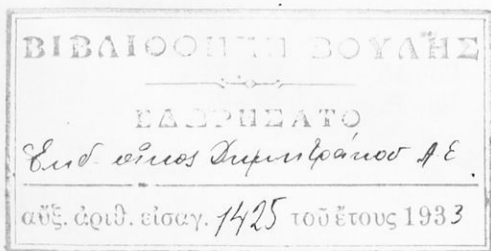 ΒΙΒΛΙΟΘΗΚΗ ΒΟΥΛΗΣ
ΕΔΩΡΗΣΑΤΟ
Ἐκδ. οἶκος Δημητράκου Α Ε
αὔξ. ἀριθ. εἰσαγ. 1425 τοῦ ἔτους 1933